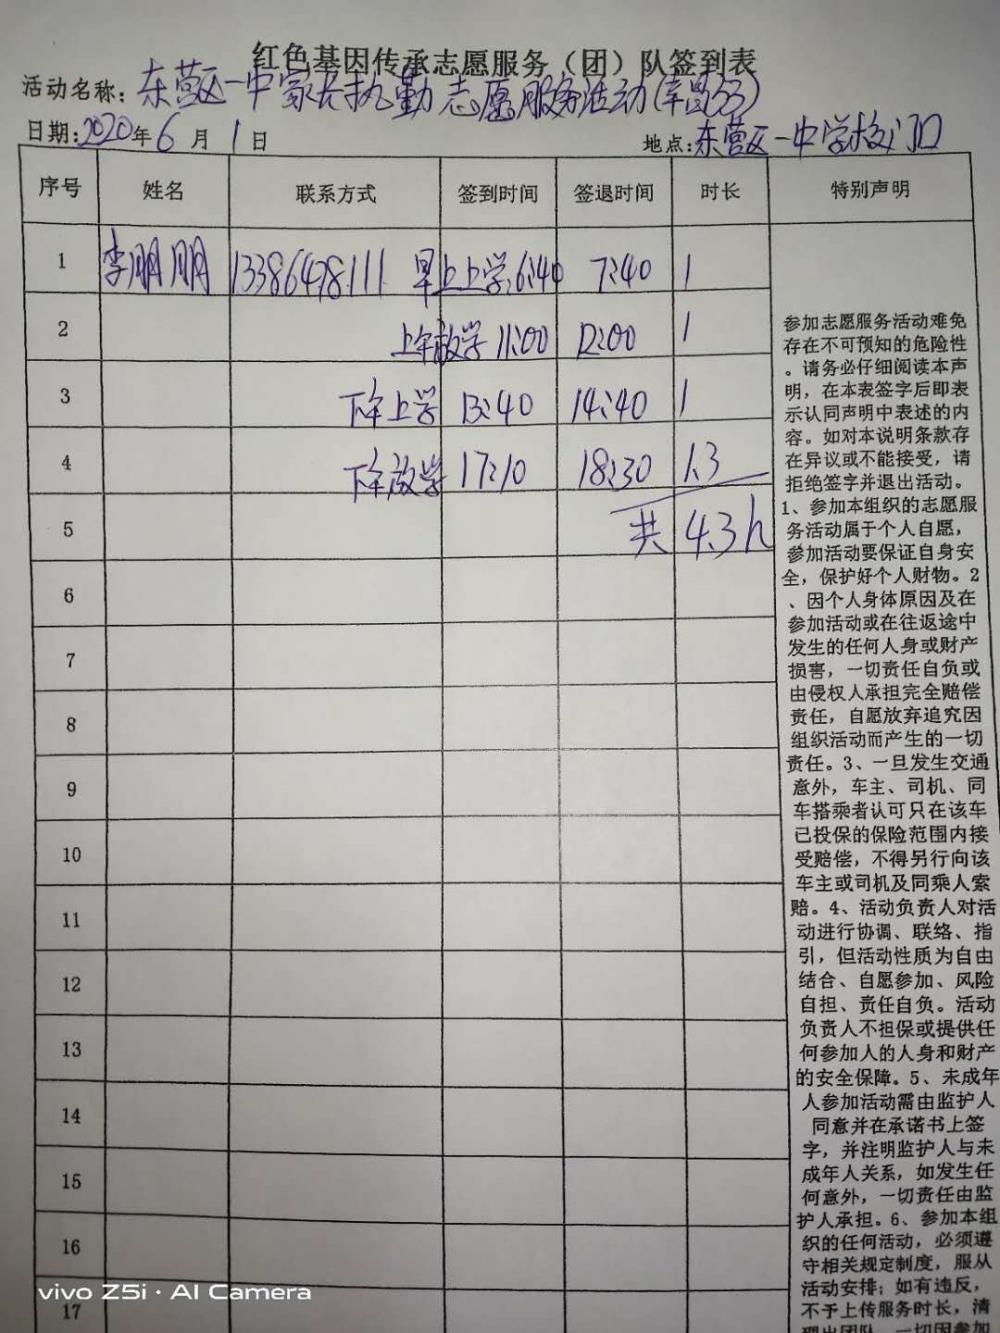 红色基因传承志愿服务（团）队签到表
活动名称：东营区一中家长执勤志愿服务活动
日期：2020年6月1日 地点：东营区一中学校门口
序号 姓名 联系方式 签到时间 签退时间 时长 特别声明
1 李朋朋 13386478111 早上上学 6:40 7:40 1
2 上午放学 11:00 12:00 1
3 下午上学 13:40 14:40 1
4 下午放学 17:10 18:30 1.3
5 共 4.3h
6
7
8
9
10
11
12
13
14
15
16
17
参加志愿服务活动难免
存在不可预知的危险性
。请务必仔细阅读本声
明，在本表签字后即表
示认同声明中表述的内
容。如对本说明条款存
在异议或不能接受，请
拒绝签字并退出活动。
1、参加本组织的志愿服
务活动属于个人自愿，
参加活动要保证自身安
全，保护好个人财物。2
、因个人身体原因及在
参加活动或在往返途中
发生的任何人身或财产
损害，一切责任自负或
由侵权人承担完全赔偿
责任，自愿放弃追究因
组织活动而产生的一切
责任。3、一旦发生交通
意外，车主、司机、同
车搭乘者认可只在该车
已投保的保险范围内接
受赔偿，不得另行向该
车主或司机及同乘人索
赔。4、活动负责人对活
动进行协调、联络、指
引，但活动性质为自由
结合、自愿参加、风险
自担、责任自负。活动
负责人不担保或提供任
何参加人的人身和财产
的安全保障。5、未成年
人参加活动需由监护人
同意并在承诺书上签
字，并注明监护人与未
成年人关系，如发生任
何意外，一切责任由监
护人承担。6、参加本组
织的任何活动，必须遵
守相关规定制度，服从
活动安排；如有违反，
不予上传服务时长，清
理出团队，一切因参加
vivo Z5i · AI Camera